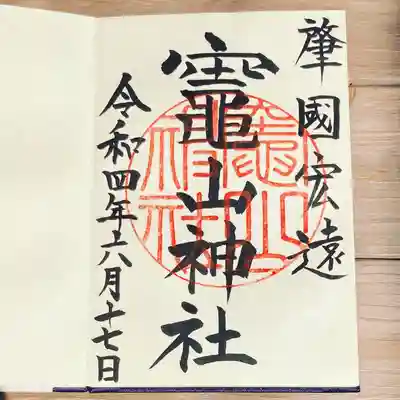 肇國宏遠
竈山神社
令和四年六月十七日